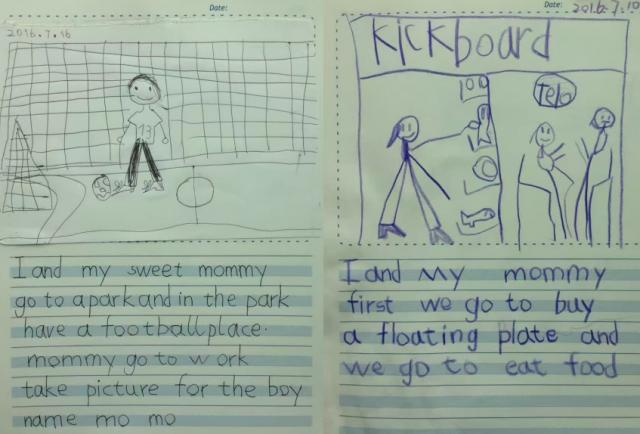 Date:
2016.7.16
13
I and my sweet mommy
go to a park and in the park
have a football place.
mommy go to work
take picture for the boy
name mo mo
Date: 2016.7.10
kickboard
100
I and My mommy
first we go to buy
a floating plate and
we go to eat food